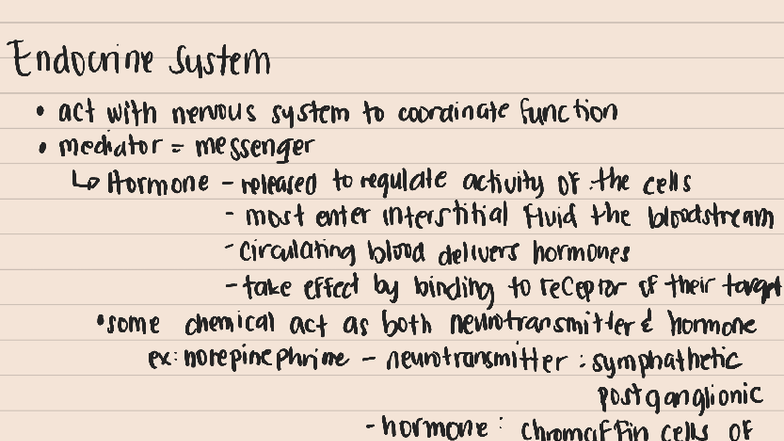 Endocrine System
• act with nervous system to coordinate function
• mediator = messenger
↳ Hormone - released to regulate activity of the cells
- most enter interstitial fluid the bloodstream
- circulating blood delivers hormones
- take effect by binding to receptor of their target
• some chemical act as both neurotransmitter & hormone
ex: norepinephrine - neurotransmitter : symphathetic
postganglionic
- hormone : chromaffin cells of